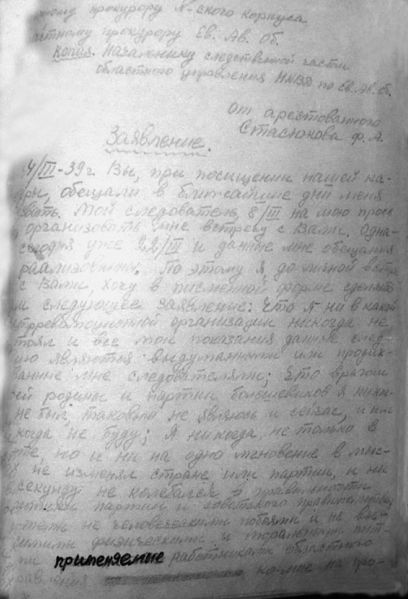 прокурору N-ского корпуса
прокурору Ев. Ав. Об.
Копия. Начальнику следственной части
областного управления НКВД по Ев. Ав. об.
от арестованного
Стасюкова Ф. А.
Заявление.
4/III-39 г. Вы, при посещении нашей ка-
ры, обещали в ближайшие дни меня
вызвать. Мой следователь 8/III на мою прось
организовать мне встречу с Вами. Одна-
сегодня уже 22/III и данные мне обещания
реализованы. По этому я до личной встр
с Вами, хочу в письменной форме сделать
следующее заявление: Что я ни в какой
нтрреволюционной организации никогда не
тоял и все мои показания данные след-
ию являются выдуманными или продик-
ванные мне следователями; Что врагом
ей родины и партии большевиков я ник
не был, таковым не являюсь и сейчас, и ни
когда не буду; Я никогда не только в
те, но и ни на одно мгновение в мыс-
х не изменял стране или партии, и ни
секунду не колебался в правильности
партии и советского правительства,
не человеческими побоями и не
физическими и моральными пыт-
ми применяемые работниками областного
управления на про-